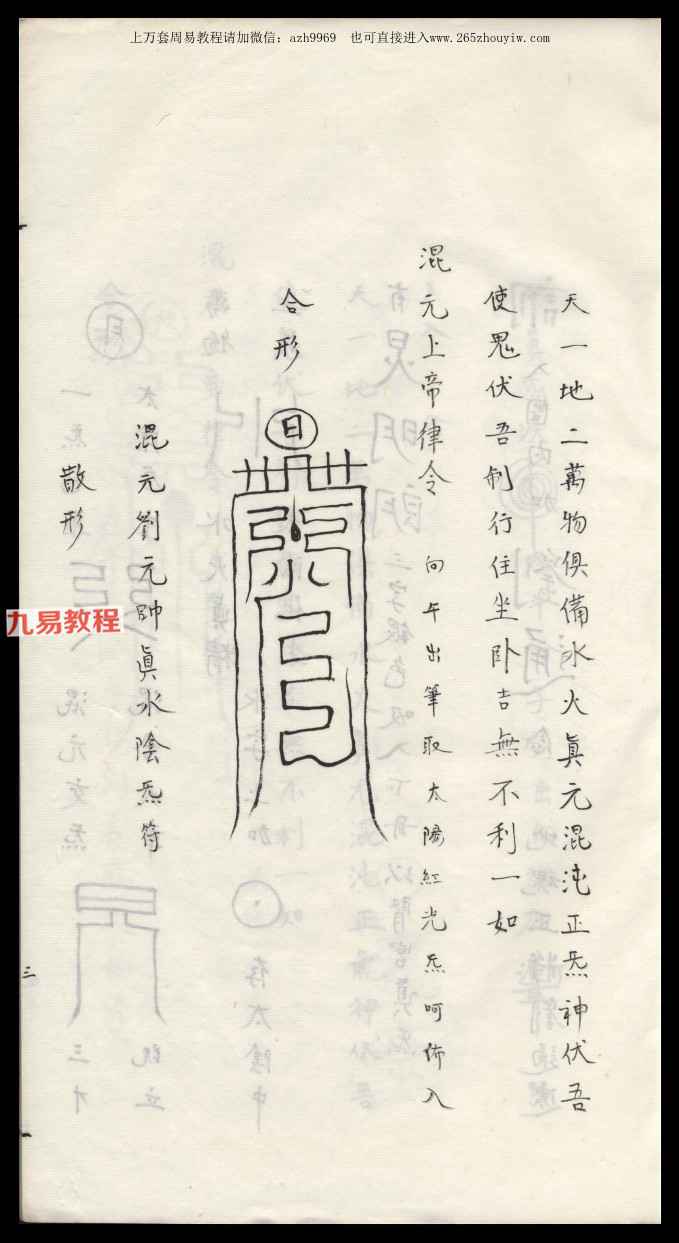 上万套周易教程请加微信：azh9969 也可直接进入www.265zhouyiw.com
天一地二萬物俱備水火真元混沌正炁神伏吾
使鬼伏吾制行住坐卧吉無不利一如
混元上帝律令 向午出筆取太陽紅光炁呵佈入
合形
日
混元劉元帥眞水陰炁符
散形
九易教程
三